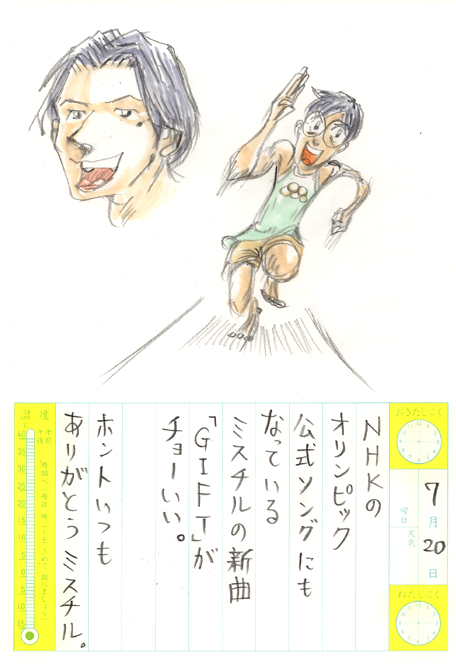 おきたじこく
7月
20日
曜日
天気
ねたじこく
NHKの
オリンピック
公式ソングにも
なっている
ミスチルの新曲
「GIFT」が
チョーいい。
ホントいつも
ありがとうミスチル。
温度
午前
午後
40
35
30
25
20
15
10
5
0
5
10
15